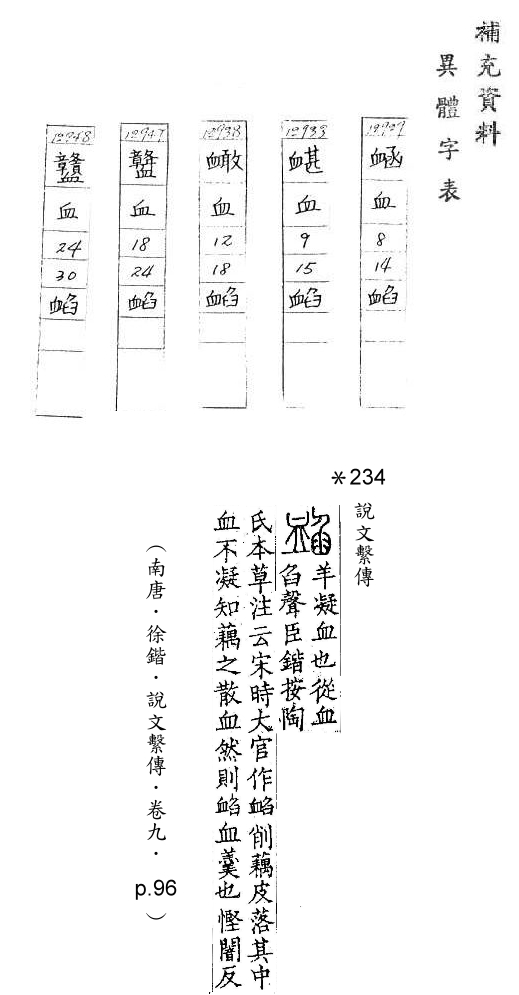 補充資料
異體字表
血
8
14
䘓
12933
血
9
15
䘓
12938
血
12
18
䘓
12947
血
18
24
䘓
12948
血
24
30
䘓
*234
說文繫傳
羊凝血也從血
臽聲臣鍇按陶
氏本草注云宋時大官作䘓削藕皮落其中
血不凝知藕之散血然則䘓血羹也慳闇反
(南唐・徐鍇・說文繫傳・卷九・p.96)